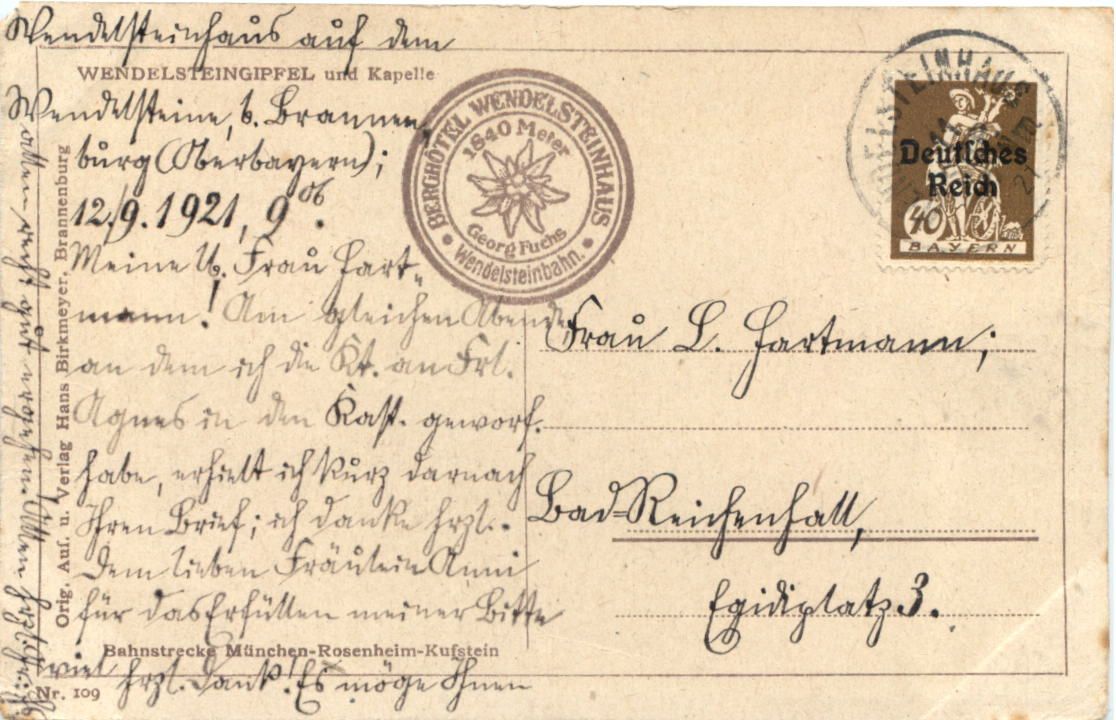 Wendelsteinhaus auf dem
WENDELSTEINGIPFEL und Kapelle
Wendelsteine, b. Brannen,
burg (Oberbayern);
12./9. 1921, 9 06.
Meine lb. Frau Hart-
mann! Am gleichen Abende
an dem ich die Kt. an Frl.
Agnes in den Kast. geworf.
habe, erhielt ich kurz darnach
Ihren Brief; ich danke hrzl.
Dem lieben Fräulein Anni
für das Erfüllen meiner Bitte
Bahnstrecke München-Rosenheim-Kufstein
viel hrzl. Dank! Es möge Ihnen
allen recht gut ergehen. Allen herzl.
Nr. 109
Orig. Auf. u. Verlag Hans Birkmeyer, Brannenburg
BERGHÔTEL WENDELSTEINHAUS
1840 Meter
Georg Fuchs
Wendelsteinbahn.
WENDELSTEINHAUS
Deutsches
Reich
40
BAYERN
Frau L. Hartmann;
Bad-Reichenhall,
Egidiplatz 3.